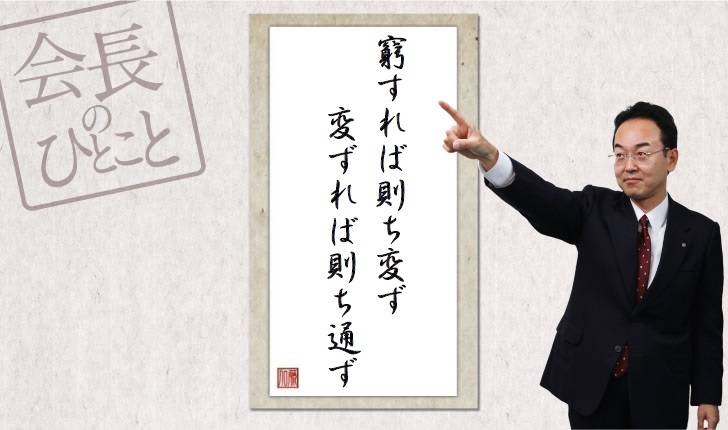 会長
の
ひとこと
窮すれば則ち変ず
変ずれば則ち通ず